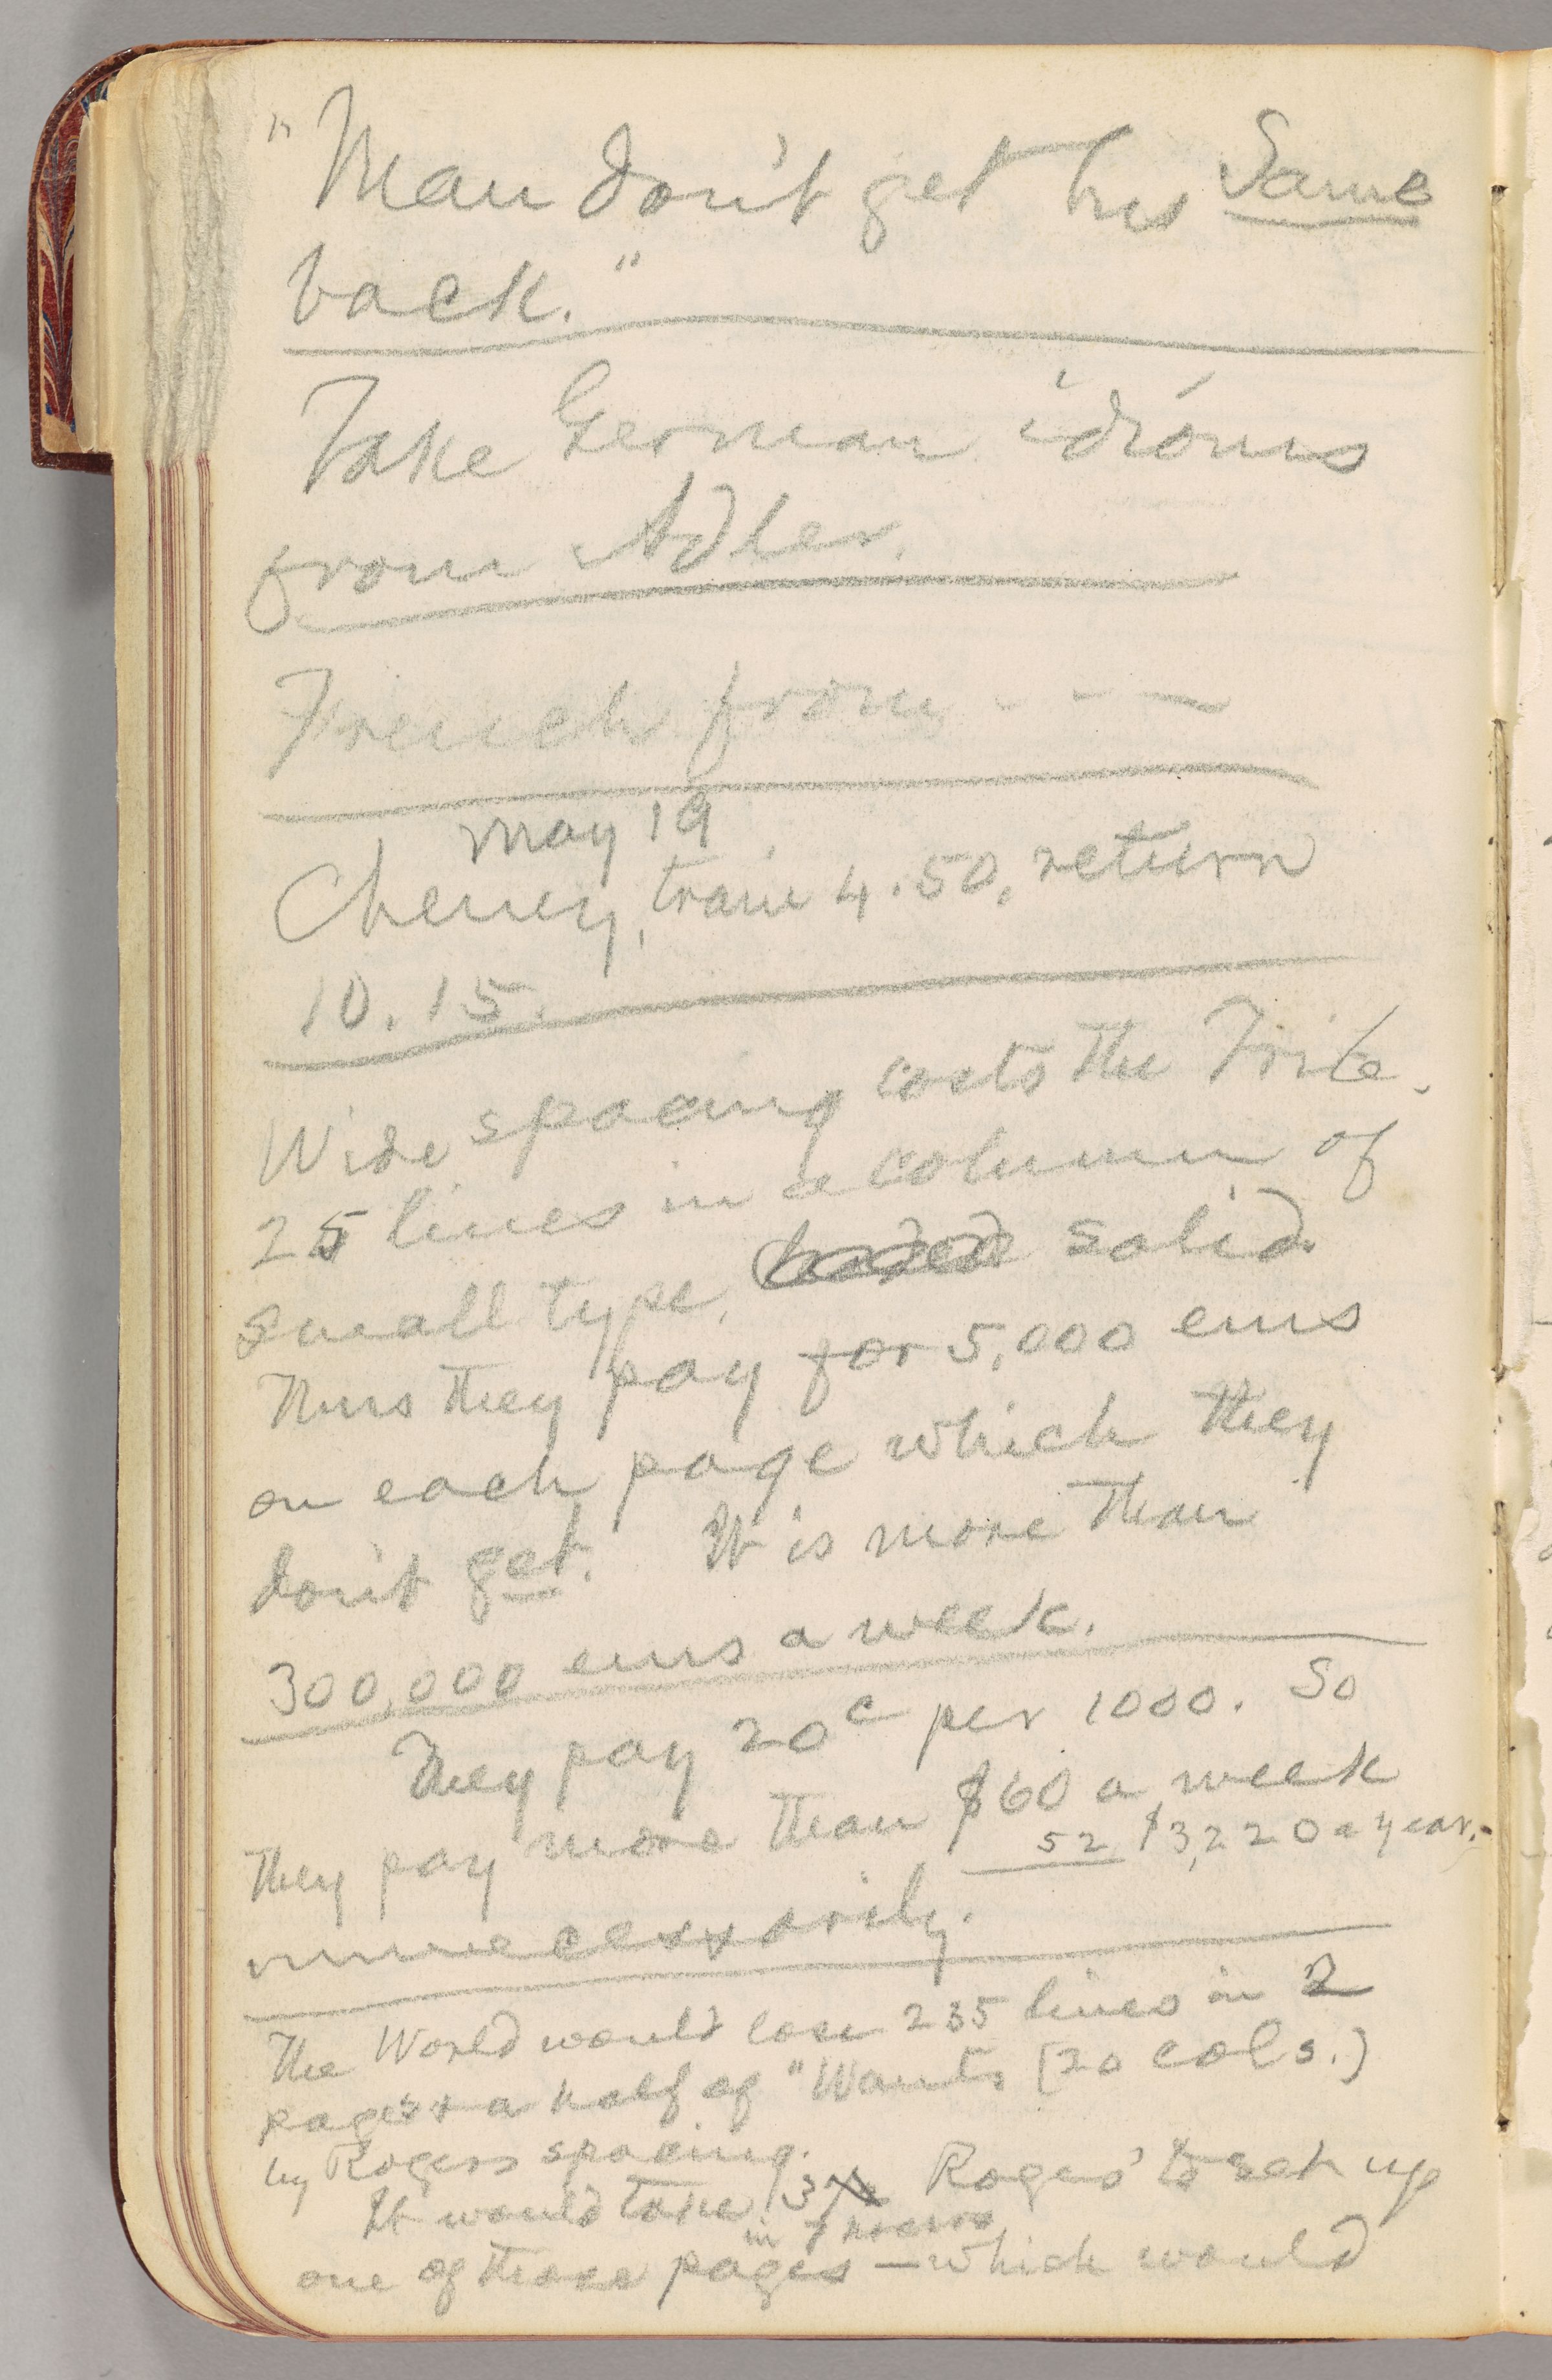 "Man don't get his Same
back."
Take German idioms
from Adler.
French from - - —
May 19
Cheney, train 4.50, return
10.15.
Wide spacing costs the Trib.
25 lines in a column of
small type, solid.
Thus they pay for 5,000 ems
on each page which they
don't get. It is more than
300,000 ems a week.
They pay 20c per 1000. So
they pay more than $60 a week
52 $3,220 a year.
unnecessarily.
The World would lose 235 lines in 2
pages & a half of "Wants (20 cols.)
by Rogers spacing.
It would take 3 Rogers' to set up
in 7 hours
one of those pages — which would